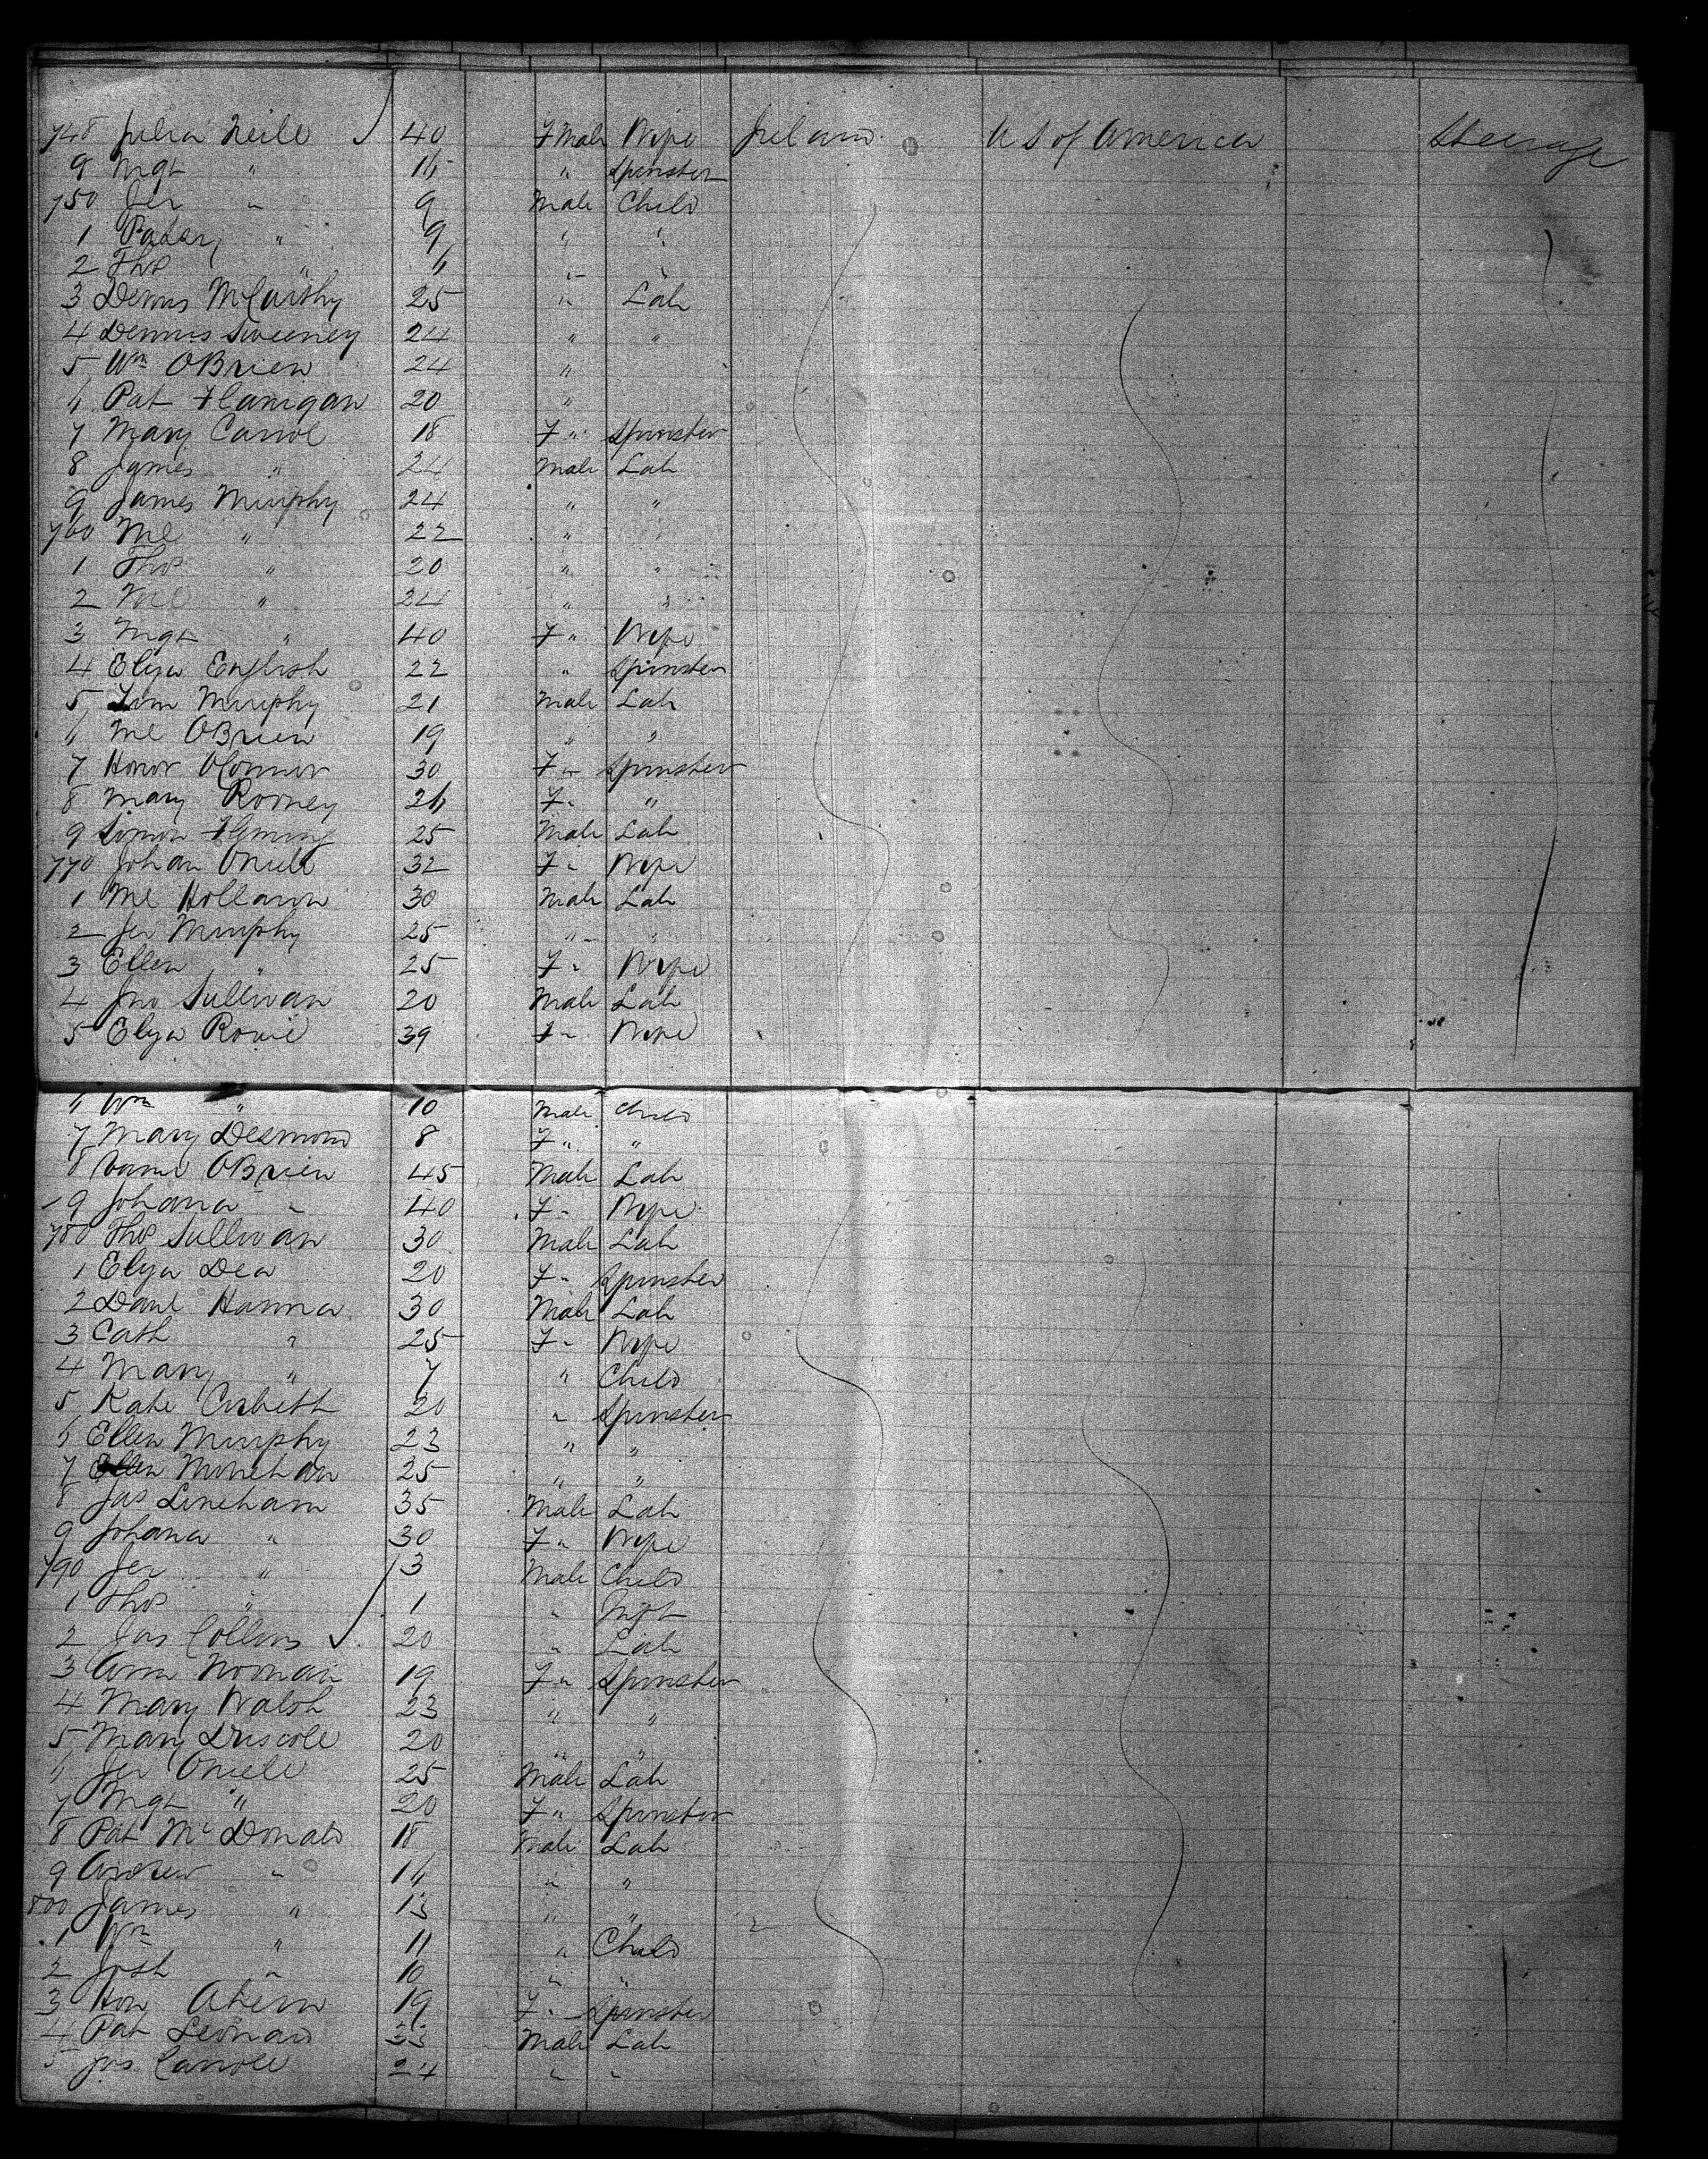 748 Julia Neile 40 F Male Wife Ireland U S of America Steerage
9 Mgt " 16 " Spinster
750 Jer " 9 Male Child
1 " 9 " "
2 Thos " 6 " "
3 Denis McCarthy 25 " Lab
4 Dennis Sweeney 24 " "
5 Wm OBrien 24 "
6 Pat Flanigan 20 "
7 Mary Carrol 18 F " Spinster
8 James " 24 Male Lab
9 James Murphy 24 " "
760 Ml " 22 "
1 Thos " 20 " "
2 Ml " 24 " "
3 Mgt " 40 F " Wife
4 Eliza English 22 " Spinster
5 Tim Murphy 21 Male Lab
6 Ml OBrien 19 " "
7 Honor OConnor 30 F " Spinster
8 Mary Rooney 26 F " "
9 Simon Fleming 25 Male Lab
770 Johan Oneill 32 F " Wife
1 Ml Hollann 30 Male Lab
2 Jer Murphy 25 " "
3 Ellen " 25 F " Wife
4 Jno Sullivan 20 Male Lab
5 Eliza 39 F " Wife
6 Wm " 10 Male Child
7 Mary Desmond 8 F " "
8 OBrien 45 Male Lab
9 Johana " 40 F " Wife
780 Thos Sullivan 30 Male Lab
1 Eliza Dea 20 F " Spinster
2 Danl Hanna 30 Male Lab
3 Cath " 25 F " Wife
4 Mary " 7 " Child
5 Kate Corbett 20 " Spinster
6 Ellen Murphy 23 " "
7 Ellen Monehan 25 " "
8 Jas Lineham 35 Male Lab
9 Johana " 30 F " Wife
790 Jer " 3 Male Child
1 Thos " 1 " Inft
2 Jas Collins 20 " Lab
3 Ann Noonan 19 F " Spinster
4 Mary Walsh 23 " "
5 Mary Driscole 20 " "
6 Jer Oneile 25 Male Lab
7 Mgt " 20 F " Spinster
8 Pat McDonald 18 Male Lab
9 Andrew " 14 " "
800 James " 13 " "
1 Wm " 11 " Child
2 Josh " 10 " "
3 Hon Ahern 19 F " Spinster
4 Pat Leonard 33 Male Lab
5 Jas Carrole 24 " "